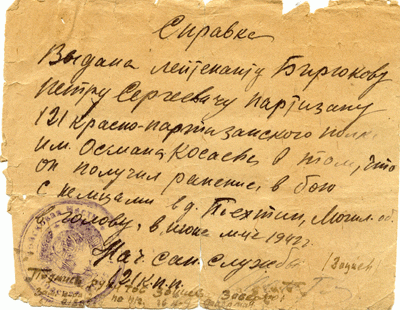 Справка
Выдана лейтенанту Бирюкову
Петру Сергеевичу партизану
121 Красно-партизанского полк.
им. Османа Косаева в том, что
он получил ранение в бою
с немцами в д. Техтин, Могил. об.
в голову, в июне м-це 1942 г.
Нач сан службы (Зайцев)
121 к.п.п.
Подпись рук тов Зайцев Заверяю: